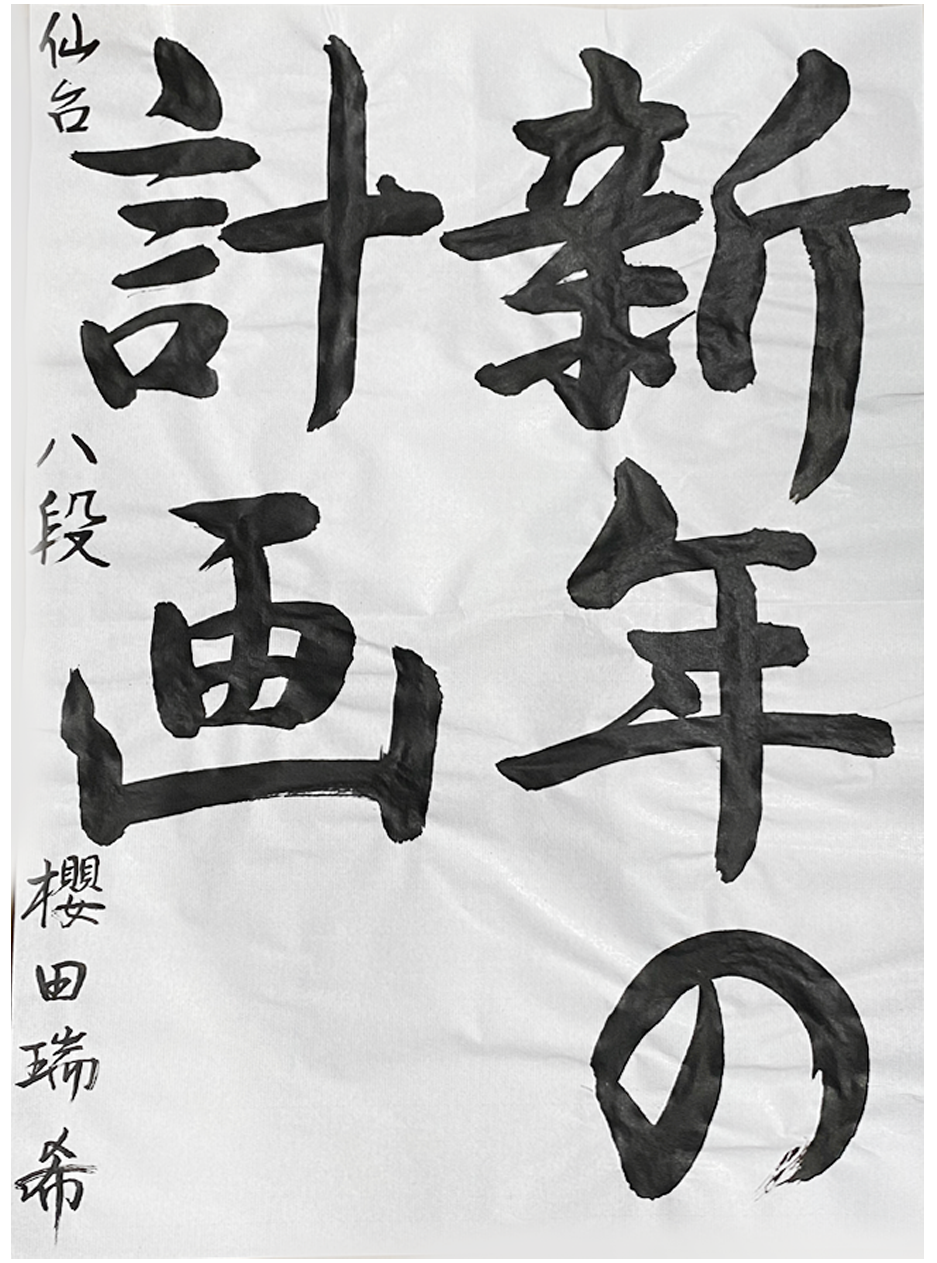 新年の
計画
仙台 八段 櫻田瑞希